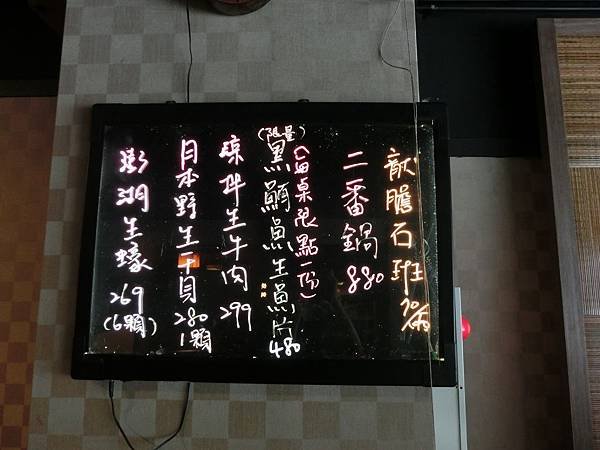 龍膽石班 70/兩
二番鍋 880
(每桌限點一份)
(限量)
黑鯛魚生魚片 480
涼拌生牛肉 299
日本野生干貝 280 1顆
澎湖生蠔 269 (6顆)